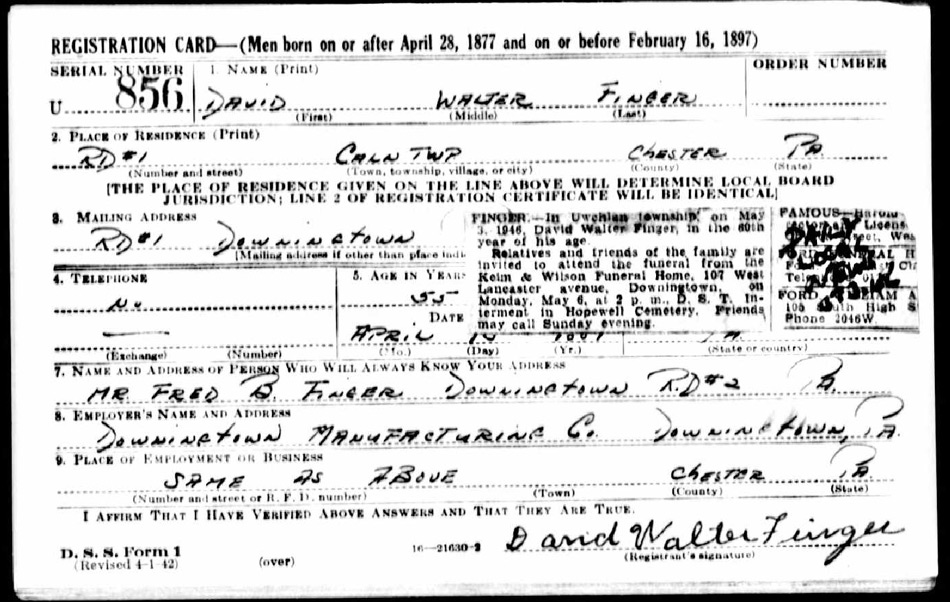 REGISTRATION CARD—(Men born on or after April 28, 1877 and on or before February 16, 1897)
SERIAL NUMBER
1. NAME (Print)
ORDER NUMBER
U 856
DAVID WALTER FINGER
(First) (Middle) (Last)
2. PLACE OF RESIDENCE (Print)
RD #1 CALN TWP CHESTER PA.
(Number and street) (Town, township, village, or city) (County) (State)
[THE PLACE OF RESIDENCE GIVEN ON THE LINE ABOVE WILL DETERMINE LOCAL BOARD
JURISDICTION; LINE 2 OF REGISTRATION CERTIFICATE WILL BE IDENTICAL]
3. MAILING ADDRESS
RD#1 DOWNINGTOWN
[Mailing address if other than place indi
FINGER.—In Uwchlan township, on May
3, 1946, David Walter Finger, in the 60th
year of his age.
Relatives and friends of the family are
invited to attend the funeral from the
Keim & Wilson Funeral Home, 107 West
Lancaster avenue, Downingtown, on
Monday, May 6, at 2 p. m., D. S. T. In-
terment in Hopewell Cemetery. Friends
may call Sunday evening.
FAMOUS—Harold
Licens
H
FORD
A
105 South High S
Phone 2046W
4. TELEPHONE
No
(Exchange) (Number)
5. AGE IN YEARS
55
DATE
APRIL
(Mo.) (Day) (Yr.)
(State or country)
7. NAME AND ADDRESS OF PERSON WHO WILL ALWAYS KNOW YOUR ADDRESS
MR FRED B. FINGER DOWNINGTOWN R.D#2 PA.
8. EMPLOYER'S NAME AND ADDRESS
DOWNINGTOWN MANUFACTURING CO. DOWNINGTOWN, PA.
9. PLACE OF EMPLOYMENT OR BUSINESS
SAME AS ABOVE CHESTER PA.
(Number and street or R. F. D. number) (Town) (County) (State)
I AFFIRM THAT I HAVE VERIFIED ABOVE ANSWERS AND THAT THEY ARE TRUE.
David Walter Finger
D. S. S. Form 1
(Revised 4-1-42)
(over)
16—21630-2
(Registrant's signature)